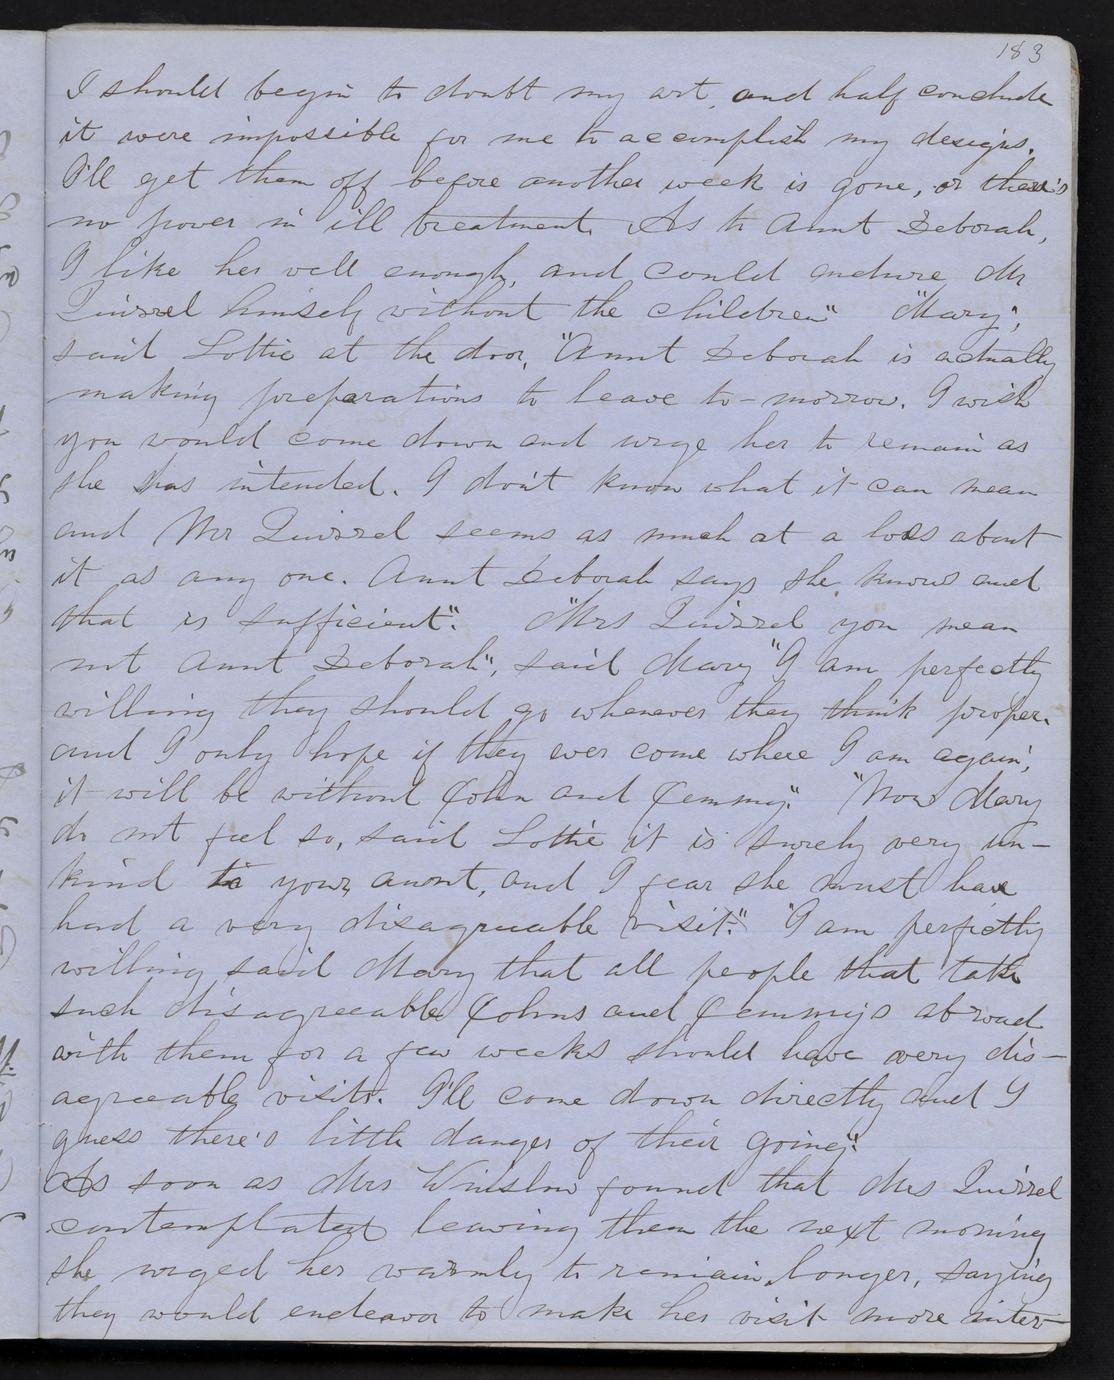 183
I should begin to doubt my art, and half conclude
it were impossible for me to accomplish my designs.
I'll get them off before another week is gone, or there's
no power in ill treatment. As to Aunt Deborah,
I like her well enough, and could endure Mr
Quirrel himself without the children" "Mary",
said Lottie at the door, "Aunt Deborah is actually
making preparations to leave to-morrow. I wish
you would come down and urge her to remain as
she has intended. I don't know what it can mean
and Mr Quirrel seems as much at a loss about
it as any one. Aunt Deborah says she knows and
that is sufficient". "Mrs Quirrel you mean
not Aunt Deborah", said Mary "I am perfectly
willing they should go whenever they think proper.
and I only hope if they ever come where I am again,
it will be without John and Jemmy". "Now Mary
do not feel so, said Lottie it is surely very un-
kind to your aunt, and I fear she must have
had a very disagreeable visit." "I am perfectly
willing said Mary that all people that take
such disagreeable Johns and Jemmys abroad
with them for a few weeks should have very dis-
agreeable visits. I'll come down directly and I
guess there's little danger of their going".
As soon as Mrs Winslow found that Mrs Quirrel
contemplated leaving them the next morning
she urged her warmly to remain longer, saying
they would endeavor to make her visit more inter-